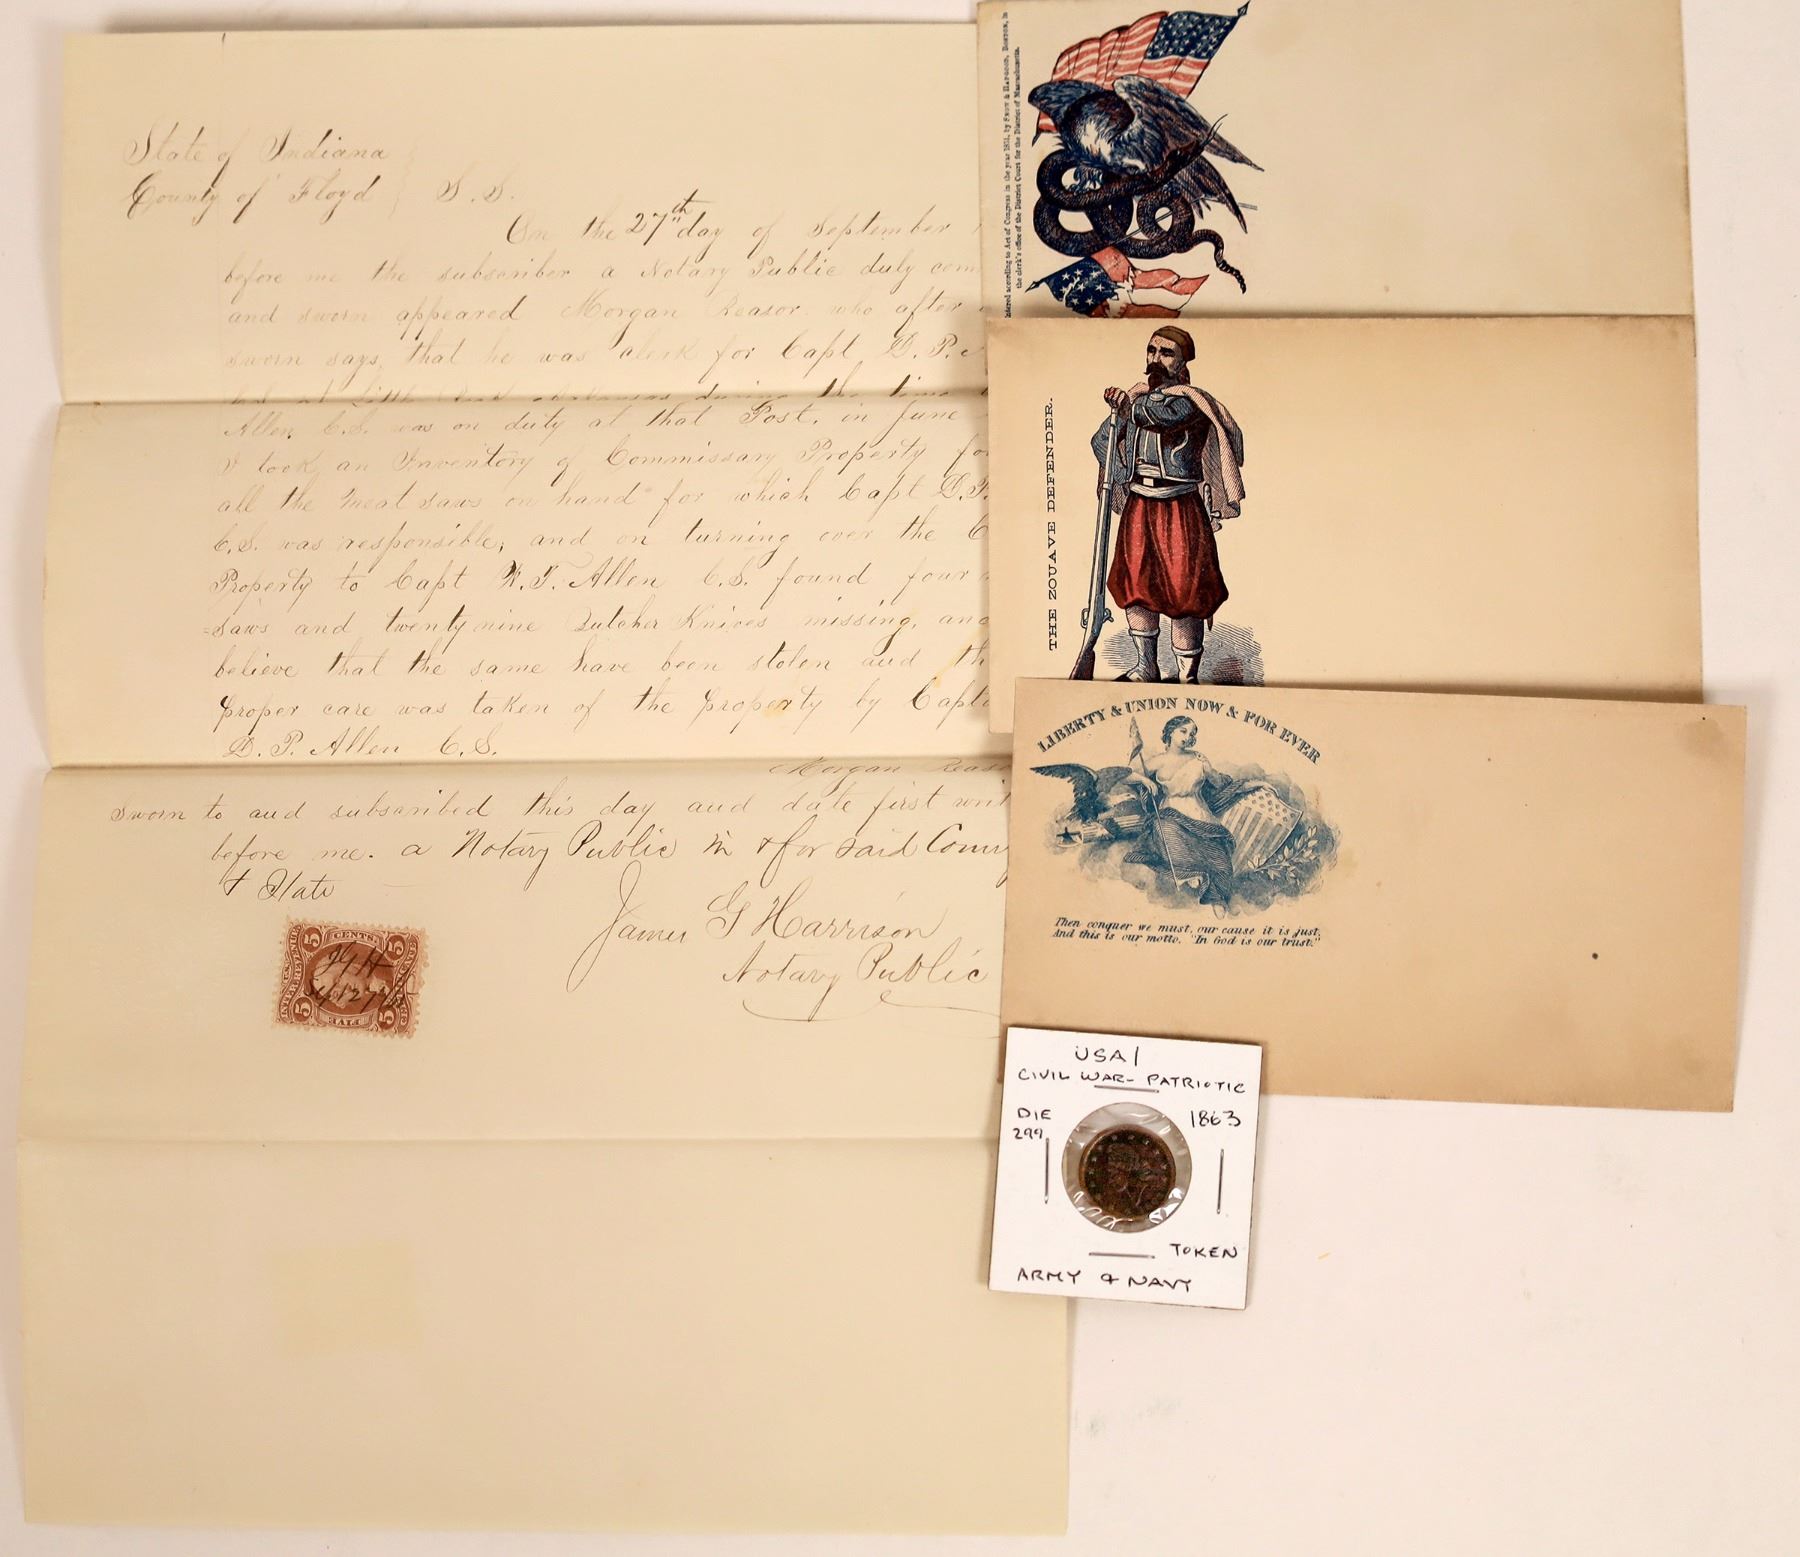 State of Indiana
County of Floyd } S.S.
On the 27th day of September
before me the subscriber a Notary Public duly com
and sworn appeared Morgan Reasor who after
sworn says, that he was clerk for Capt D. P.
C.S. at Little Rock Arkansas during the time
Allen C.S. was on duty at that Post, in June
I took an Inventory of Commissary Property fo
all the Meat saws on hand for which Capt D.P.
C.S. was responsible; and on turning over the C
Property to Capt W. F. Allen C.S. found four
saws and twenty nine Butcher Knives missing, and
believe that the same have been stolen and th
proper care was taken of the property by Capt
D. P. Allen C.S.
Morgan Reas
Sworn to and subscribed this day and date first writ
before me. a Notary Public in & for said Coun
& State
James G Harrison
Notary Public
5 CENTS 5
INTER. REVENUE
JGH
Sept 27
5 FIVE 5
Entered according to Act of Congress in the year 1861, by SNOW & HAPGOOD, BOSTON, in
the clerk's office of the District Court for the District of Massachusetts.
THE ZOUAVE DEFENDER.
LIBERTY & UNION NOW & FOR EVER
Then conquer we must, our cause it is just,
And this is our motto, "In God is our trust."
USA/
CIVIL WAR- PATRIOTIC
DIE
299
1863
TOKEN
ARMY & NAVY